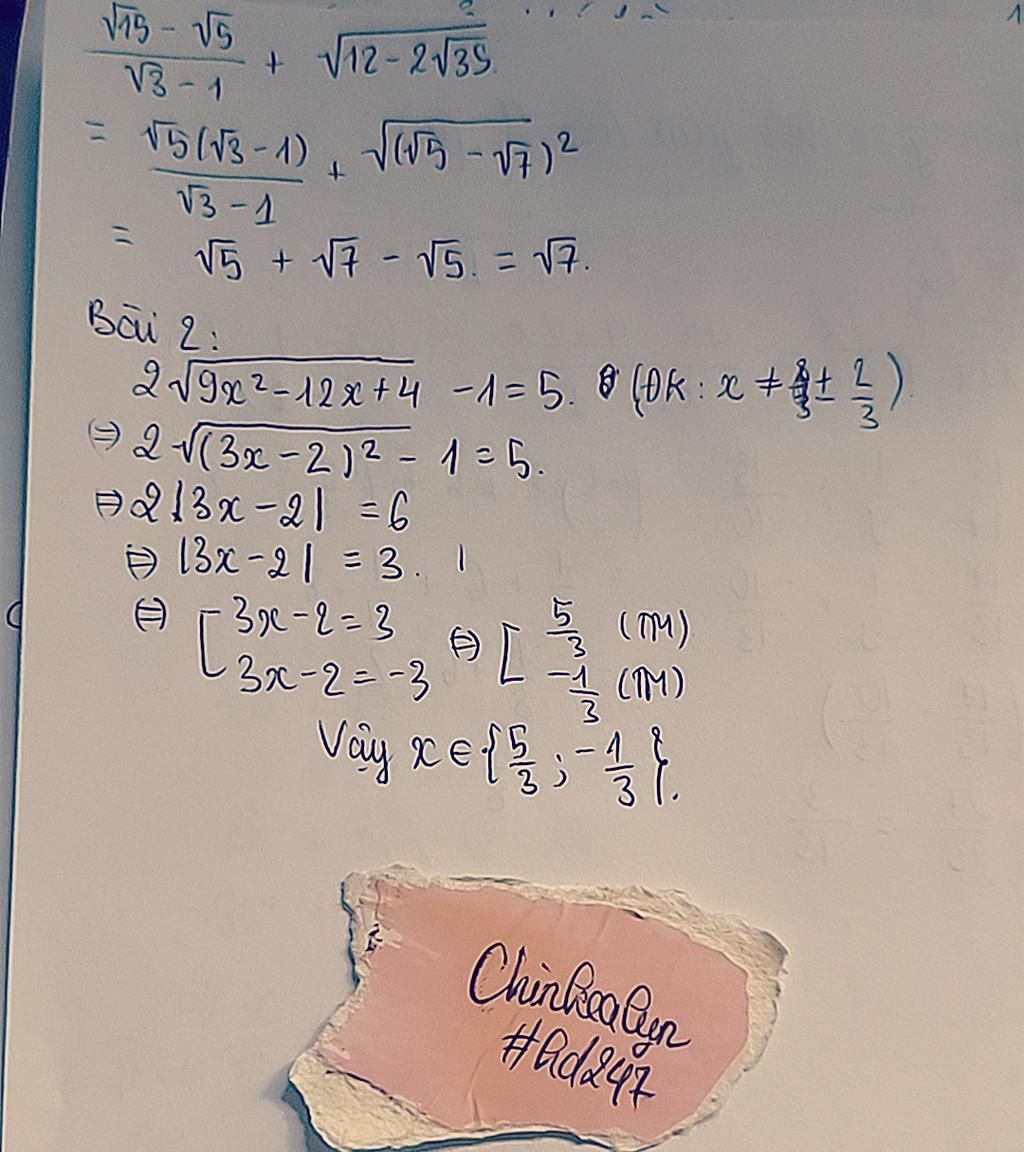 (√15 - √5)/(√3 - 1) + √(12 - 2√35).
= √5(√3 - 1)/(√3 - 1) + √((√5 - √7)²)
= √5 + √7 - √5. = √7.
Bài 2:
2√(9x² - 12x + 4) - 1 = 5. (ĐK: x ≠ ± 2/3).
⇔ 2√((3x - 2)²) - 1 = 5.
⇔ 2|3x - 2| = 6
⇔ |3x - 2| = 3.
⇔ [ 3x - 2 = 3 ⇔ [ 5/3 (TM)
3x - 2 = -3 -1/3 (TM)
Vậy x ∈ {5/3 ; -1/3}.
#Ad247